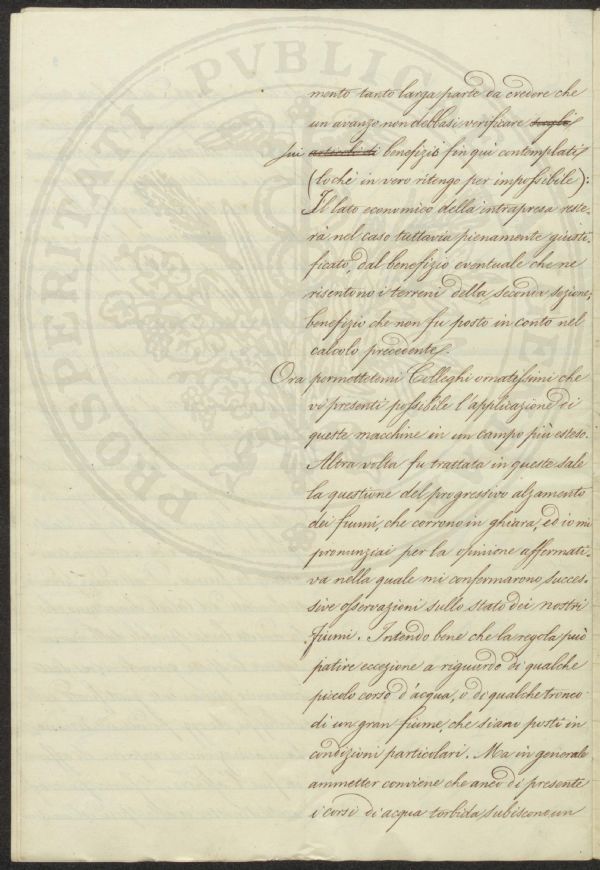 PROSPERITATI PVBLICAE
mento tanto larga parte da credere che
un avanzo non debbasi verificare sugli
sui articoli di benefizio fin qui contemplati
(lochè in vero ritengo per impossibile):
Il lato economico della intrapresa reste-
rà nel caso tuttavia pienamente giusti-
ficato, dal benefizio eventuale che ne
risentono i terreni della seconda sezione;
benefizio che non fu posto in conto nel
calcolo precedente.
Ora permettetemi Colleghi ornatissimi che
vi presenti possibile l'applicazione di
queste macchine in un campo più esteso.
Altra volta fu trattata in queste sale
la questione del progressivo alzamento
dei fiumi, che corrono in ghiara, ed io mi
pronunziai per la opinione affermati-
va nella quale mi confermarono succes-
sive osservazioni sullo stato dei nostri
fiumi. Intendo bene che la regola può
patire eccezione a riguardo di qualche
piccolo corso d'acqua, o di qualche tronco
di un gran fiume, che siano posti in
condizioni particolari. Ma in generale
ammetter conviene che anco di presente
i corsi di acqua torbida subiscono un